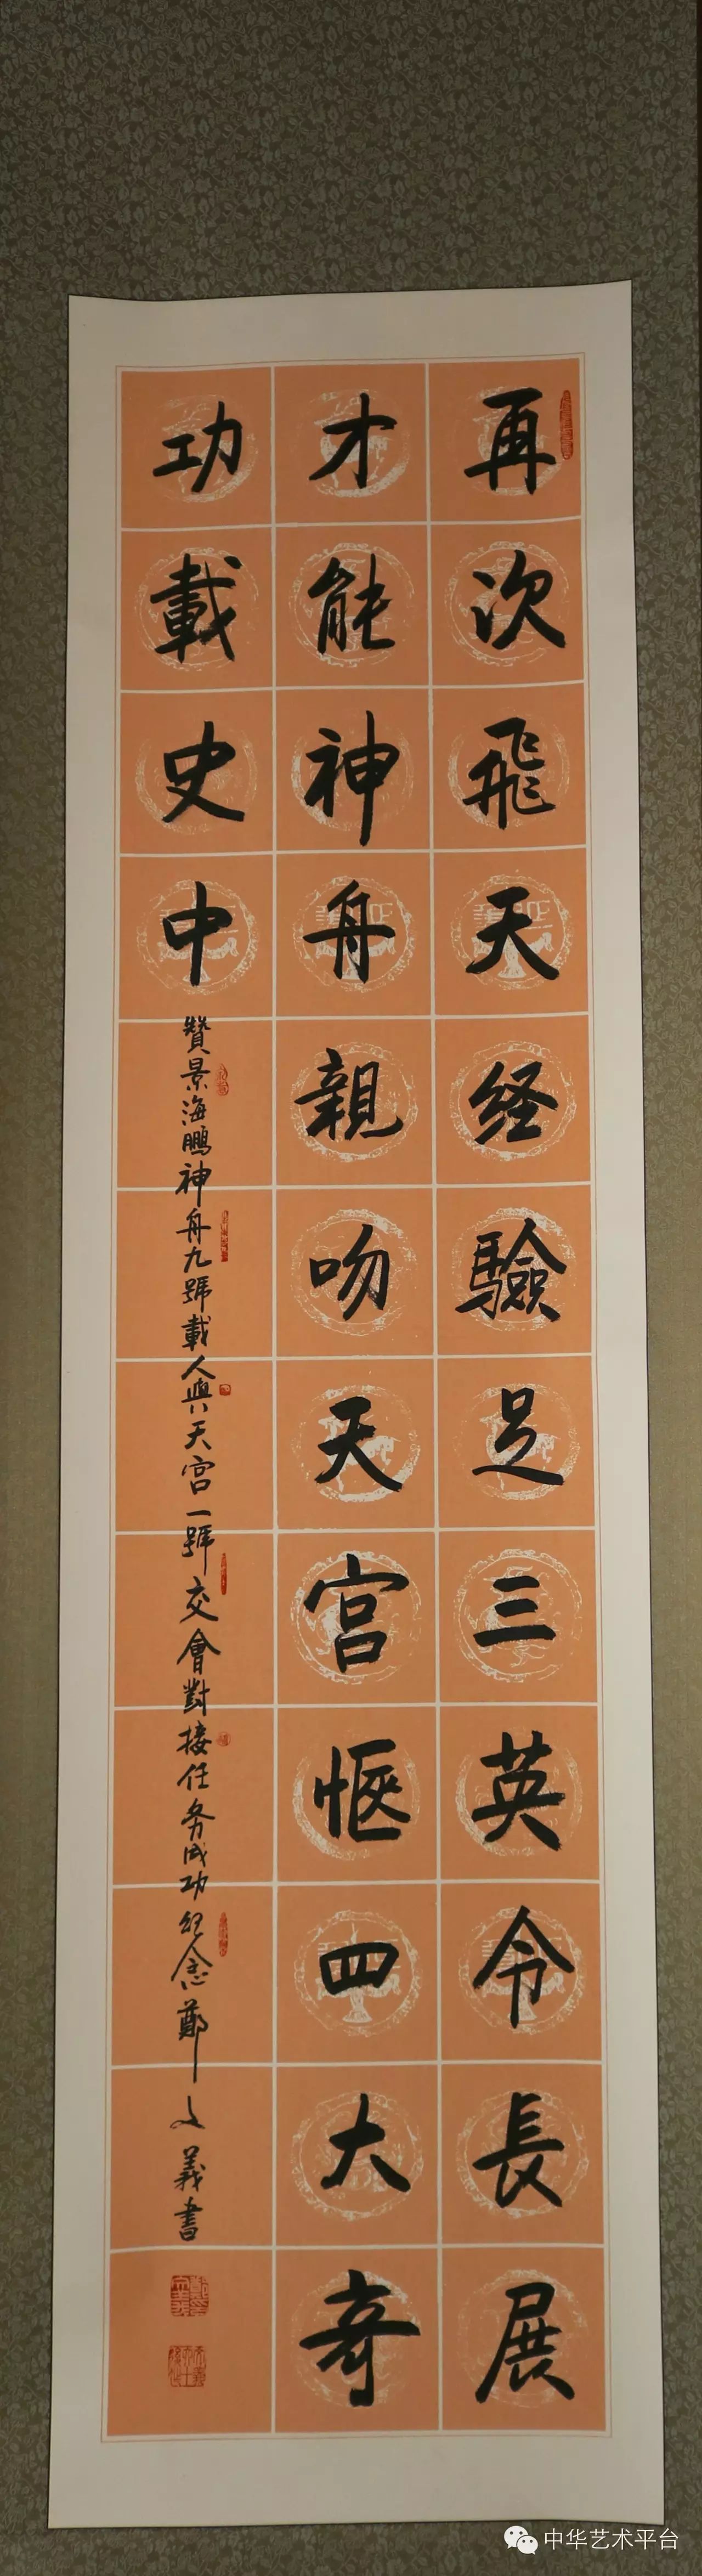 再次飛天经驗足三英令長展
才能神舟親吻天宫惬四大奇
功載史中
贊景海鹏神舟九號載人與天宫一號交會對接任务成功纪念鄭文義書
中华艺术平台